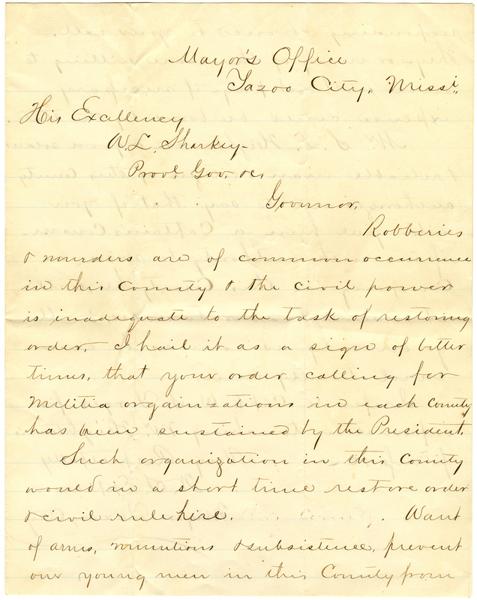 Mayor's Office
Yazoo City, Missi.
His Excellency
W L. Sharkey-
Provl Gov. &c
Governor,
Robberies
& murders are of common occurrence
in this County & the civil power
is inadequate to the task of restoring
order. I hail it as a sign of better
times, that your order calling for
Militia organizations in each County
has been sustained by the President.
Such organization in this County
would in a short time restore order
& civil rule here. Want
of arms, munitions & subsistence, prevent
our young men in this County from